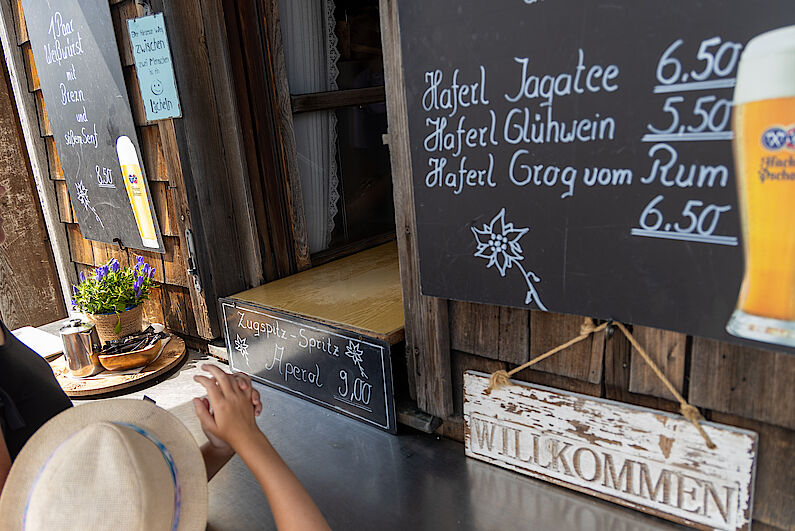 1 Paar
Weißwürst
mit
Brezn
und
süßem Senf
8.50
zwischen
zwei Menschen
ist ein
Lächeln
Haferl Jagatee 6.50
Haferl Glühwein 5,50
Haferl Grog vom Rum
6.50
Hacker
Pschorr
Zugspitz-Spritz
Aperol 9,00
WILLKOMMEN